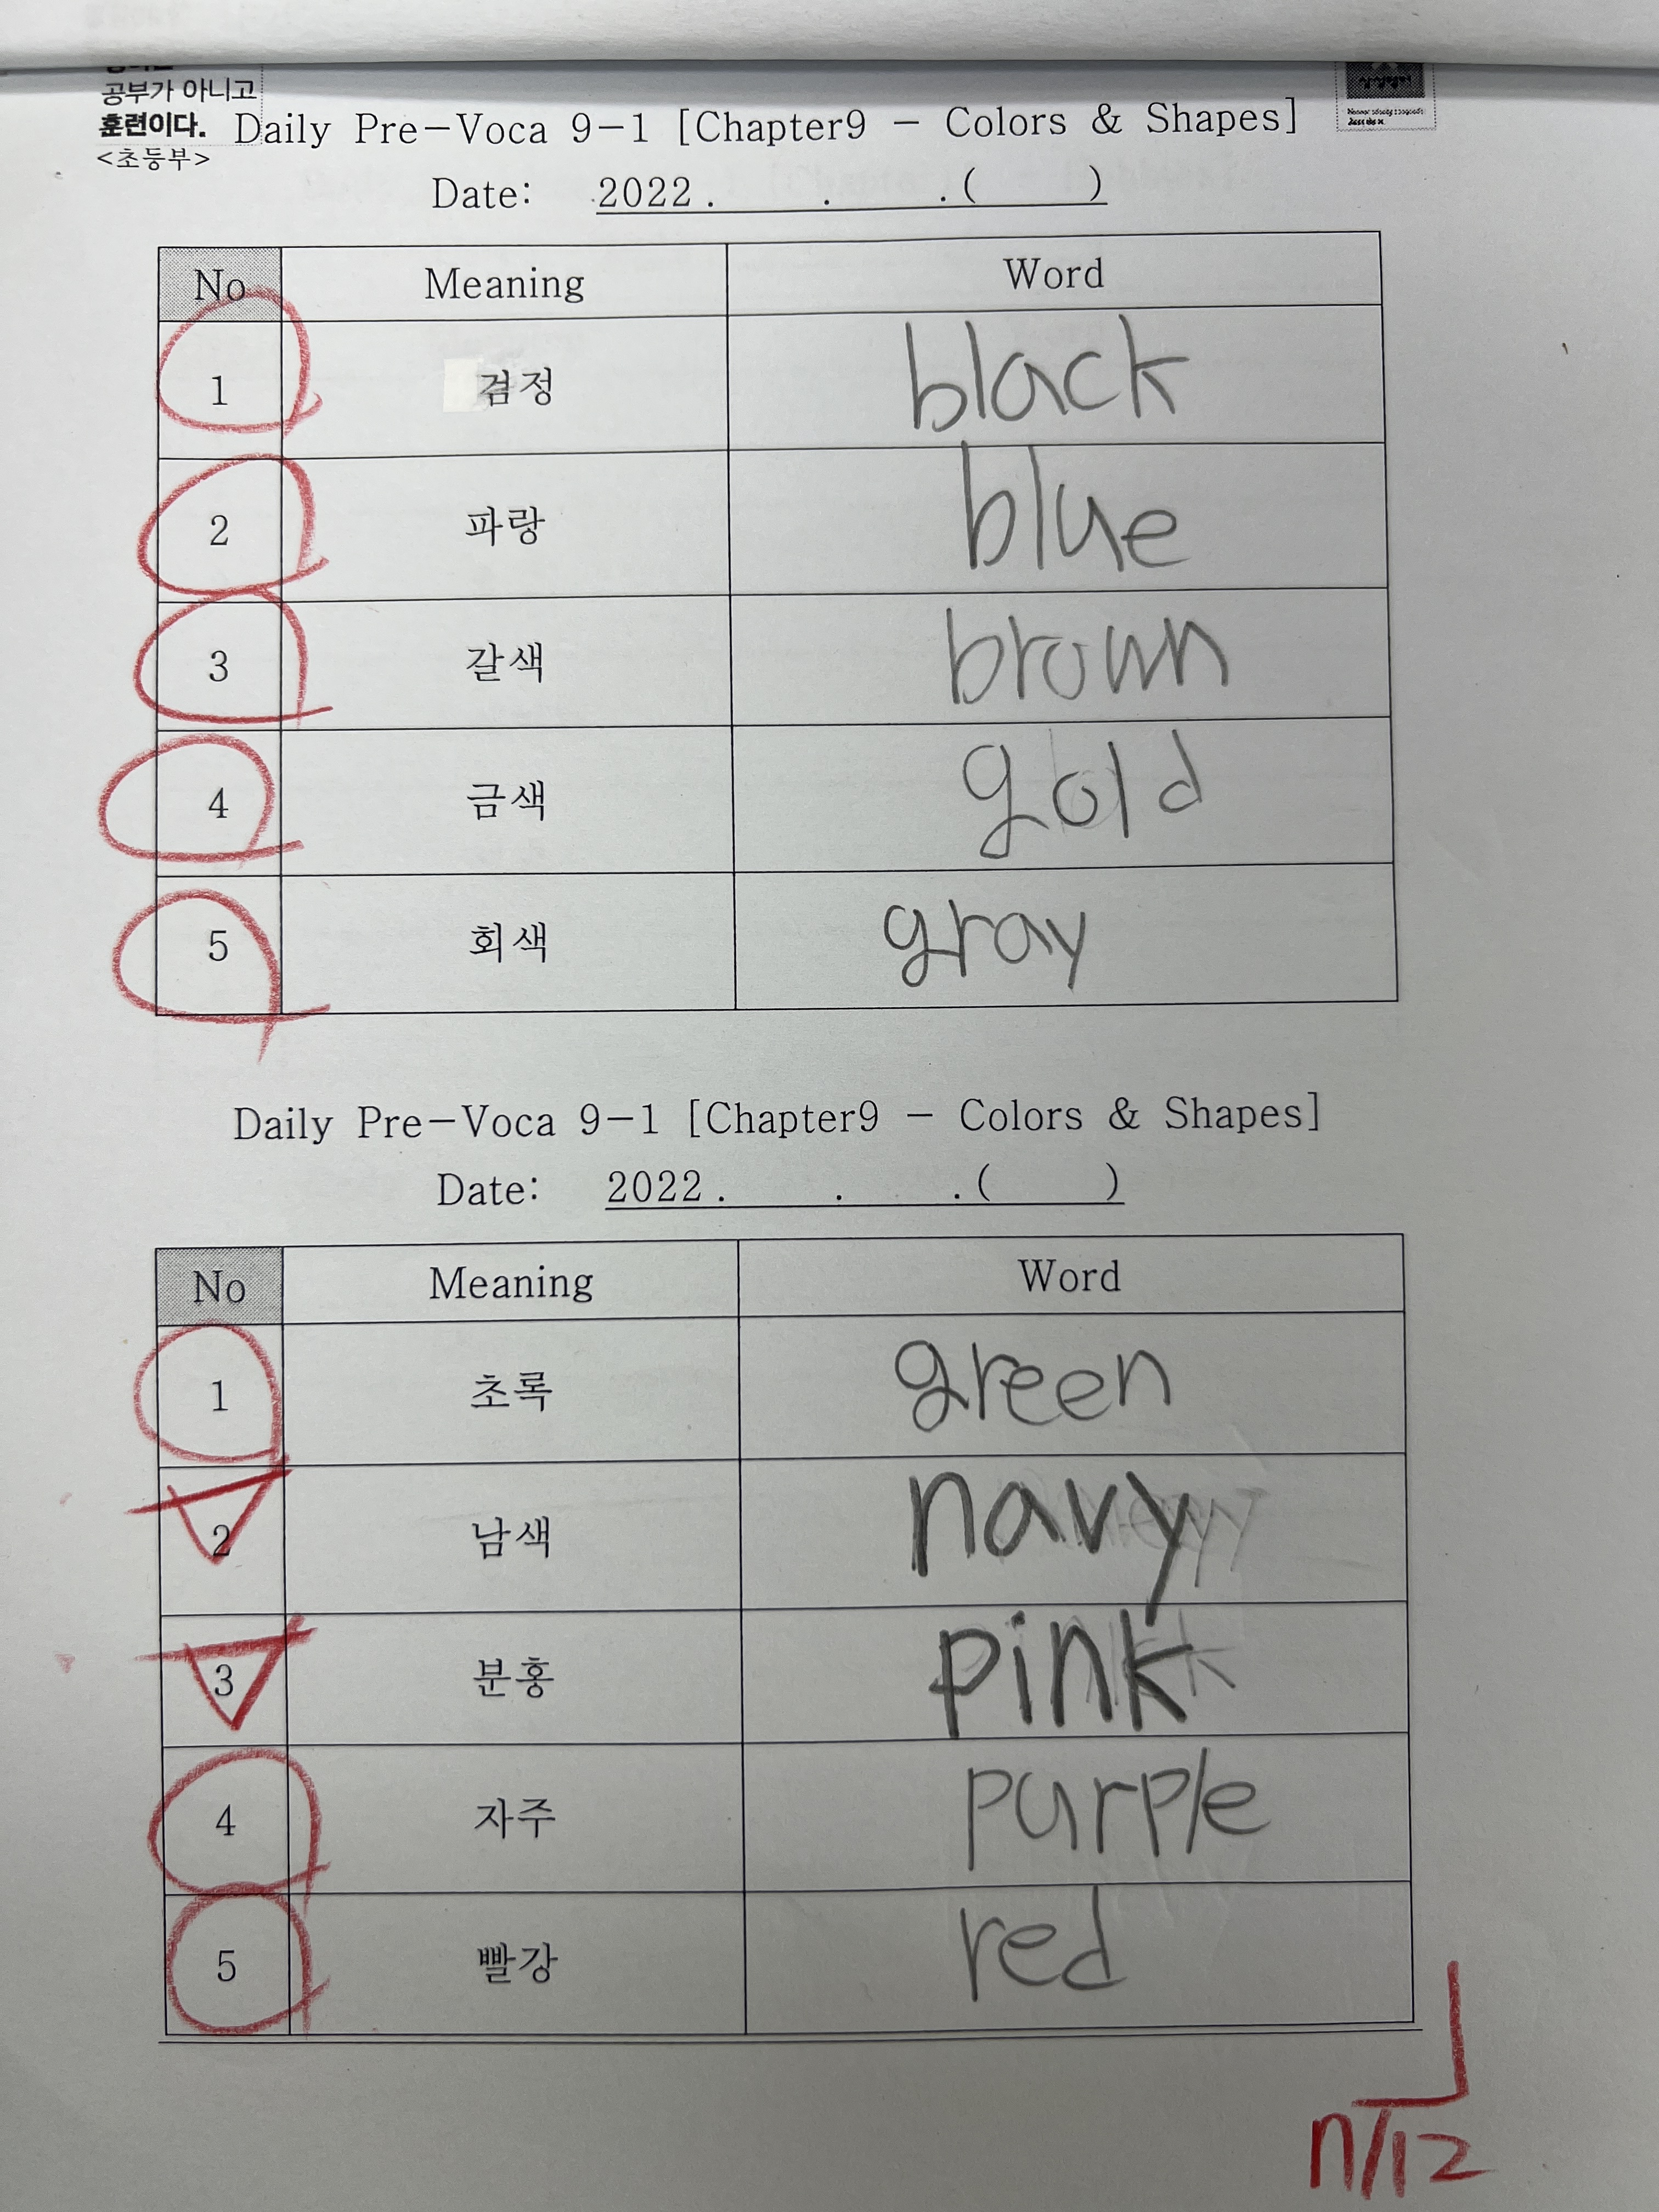 공부가 아니고
훈련이다.
<초등부>
Daily Pre-Voca 9-1 [Chapter9 - Colors & Shapes]
Date: 2022. . .( )
No Meaning Word
1 검정 black
2 파랑 blue
3 갈색 brown
4 금색 gold
5 회색 gray
Daily Pre-Voca 9-1 [Chapter9 - Colors & Shapes]
Date: 2022. . .( )
No Meaning Word
1 초록 green
2 남색 navy
3 분홍 pink
4 자주 purple
5 빨강 red